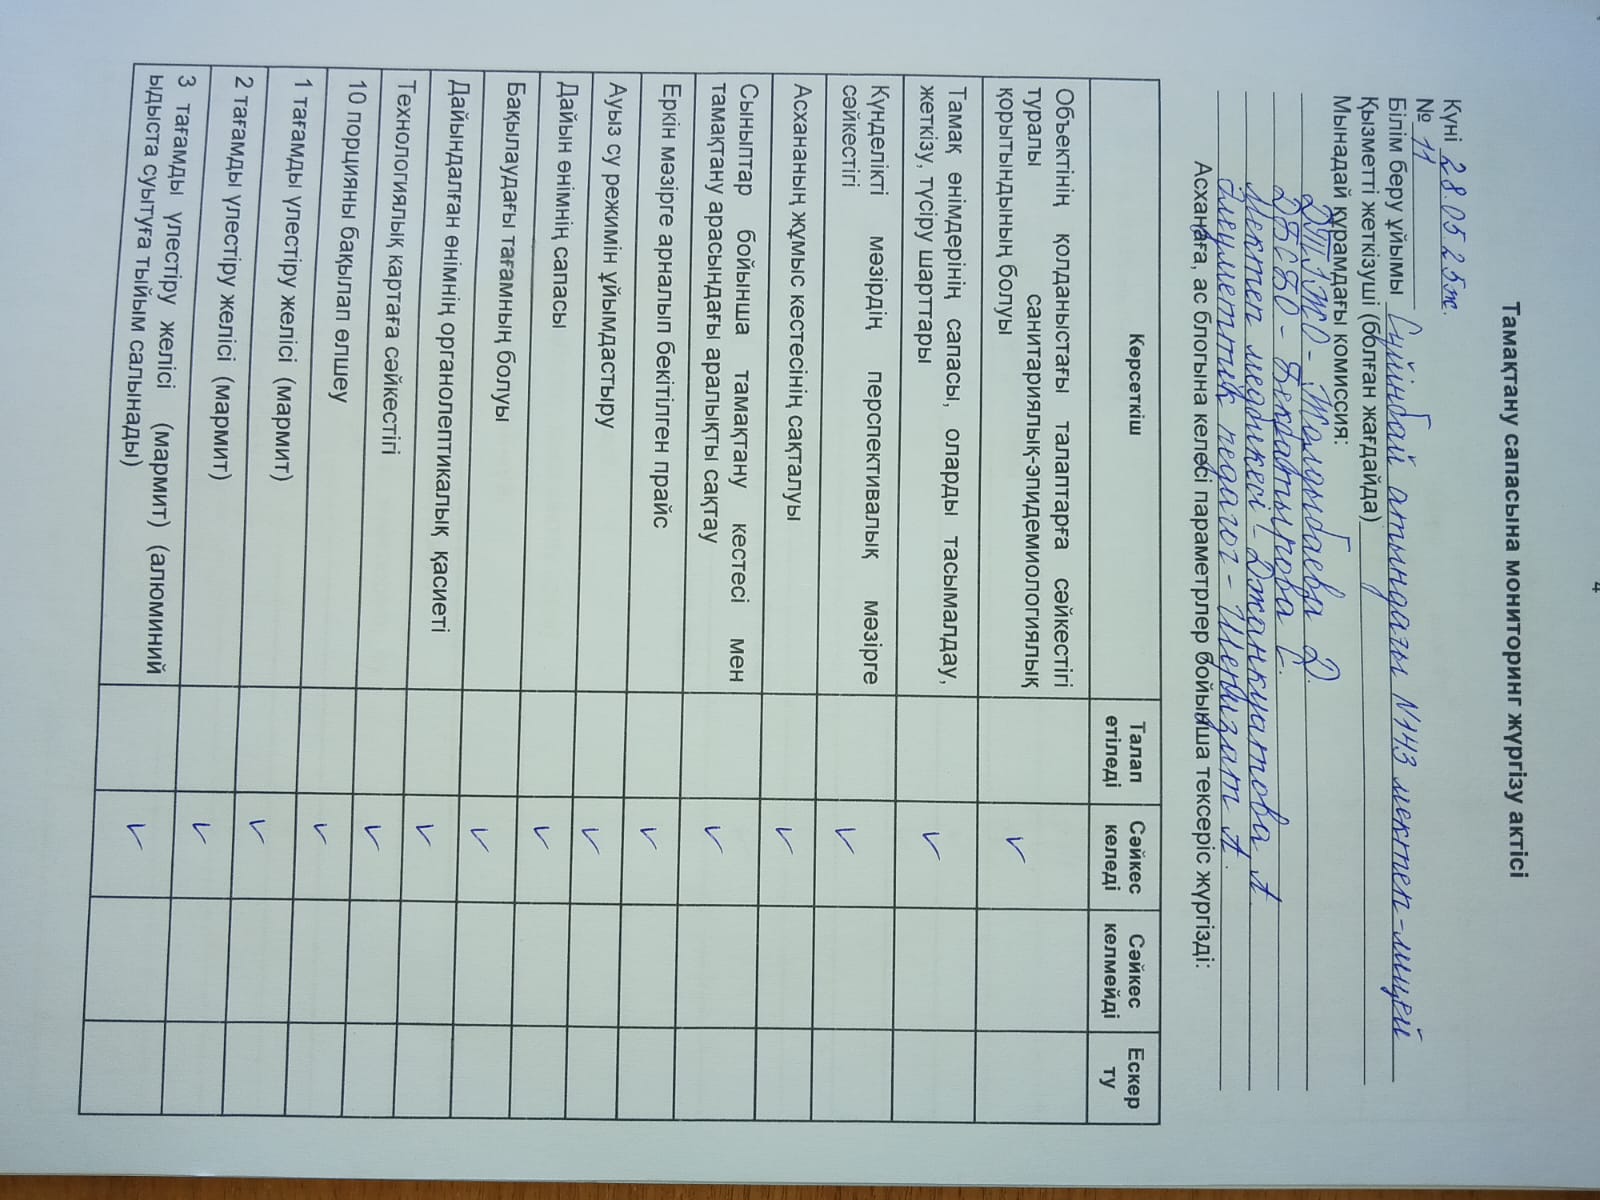 4
Тамақтану сапасына мониторинг жүргізу актісі
Күні 28.05.25ж.
№ 11
Білім беру ұйымы Сүйінбай атындағы №143 мектеп-лицей
Қызметті жеткізуші (болған жағдайда)
Мынадай құрамдағы комиссия:
ДТІЖО - Жолдыбаева Д.
ДБСБО - Бекбатырова Г.
Мектеп медбикесі - Джанкуатова А
Әлеуметтік педагог - Шенизат А.
Асханаға, ас блогына келесі параметрлер бойынша тексеріс жүргізді:
Көрсеткіш
Талап
етіледі
Сәйкес
келеді
Сәйкес
келмейді
Ескер
ту
Объектінің қолданыстағы талаптарға сәйкестігі
туралы санитариялық-эпидемиологиялық
қорытындының болуы
✓
Тамақ өнімдерінің сапасы, оларды тасымалдау,
жеткізу, түсіру шарттары
✓
Күнделікті мәзірдің перспективалық мәзірге
сәйкестігі
✓
Асхананың жұмыс кестесінің сақталуы
✓
Сыныптар бойынша тамақтану кестесі мен
тамақтану арасындағы аралықты сақтау
✓
Еркін мәзірге арналып бекітілген прайс
✓
Ауыз су режимін ұйымдастыру
✓
Дайын өнімнің сапасы
✓
Бақылаудағы тағамның болуы
✓
Дайындалған өнімнің органолептикалық қасиеті
✓
Технологиялық картаға сәйкестігі
✓
10 порцияны бақылап өлшеу
✓
1 тағамды үлестіру желісі (мармит)
✓
2 тағамды үлестіру желісі (мармит)
✓
3 тағамды үлестіру желісі (мармит) (алюминий
ыдыста суытуға тыйым салынады)
✓